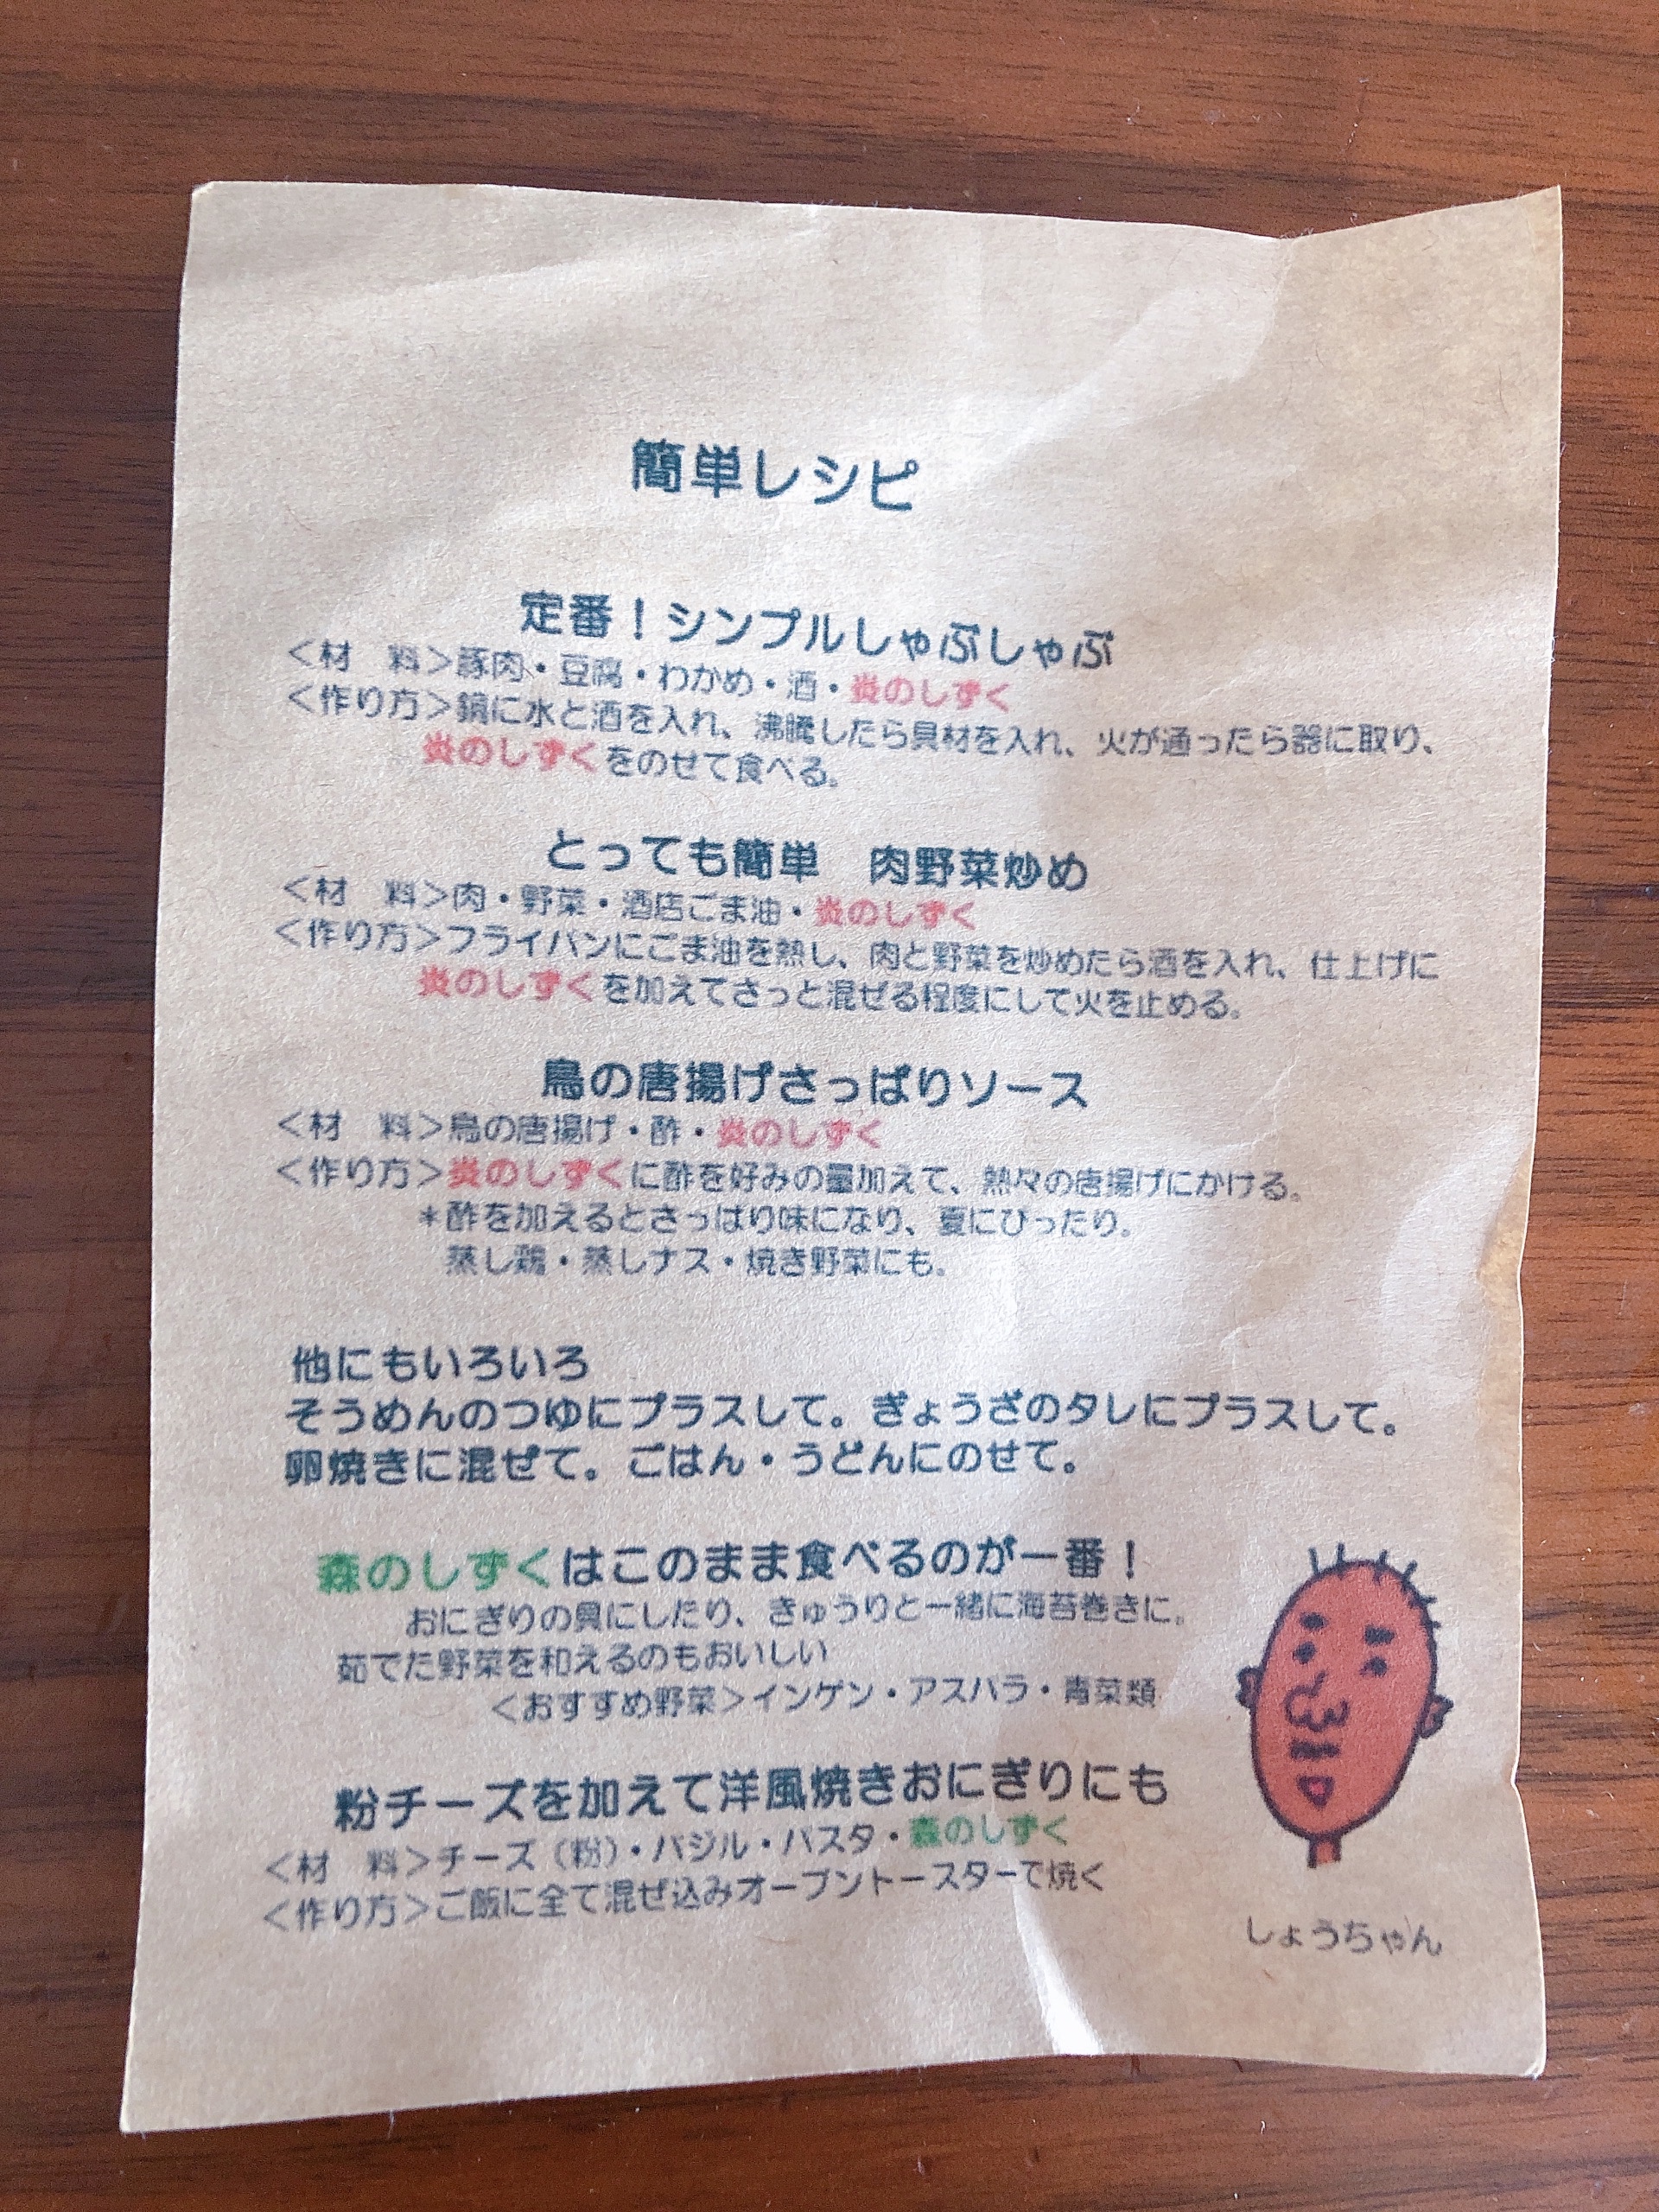 簡単レシピ
定番！シンプルしゃぶしゃぶ
＜材　料＞豚肉・豆腐・わかめ・酒・炎のしずく
＜作り方＞鍋に水と酒を入れ、沸騰したら具材を入れ、火が通ったら器に取り、
炎のしずくをのせて食べる。
とっても簡単　肉野菜炒め
＜材　料＞肉・野菜・酒店ごま油・炎のしずく
＜作り方＞フライパンにごま油を熱し、肉と野菜を炒めたら酒を入れ、仕上げに
炎のしずくを加えてさっと混ぜる程度にして火を止める。
鳥の唐揚げさっぱりソース
＜材　料＞鳥の唐揚げ・酢・炎のしずく
＜作り方＞炎のしずくに酢を好みの量加えて、熱々の唐揚げにかける。
＊酢を加えるとさっぱり味になり、夏にぴったり。
蒸し鶏・蒸しナス・焼き野菜にも。
他にもいろいろ
そうめんのつゆにプラスして。ぎょうざのタレにプラスして。
卵焼きに混ぜて。ごはん・うどんにのせて。
森のしずくはこのまま食べるのが一番！
おにぎりの具にしたり、きゅうりと一緒に海苔巻きに。
茹でた野菜を和えるのもおいしい
＜おすすめ野菜＞インゲン・アスパラ・青菜類
粉チーズを加えて洋風焼きおにぎりにも
＜材　料＞チーズ（粉）・バジル・パスタ・森のしずく
＜作り方＞ご飯に全て混ぜ込みオーブントースターで焼く
しょうちゃん